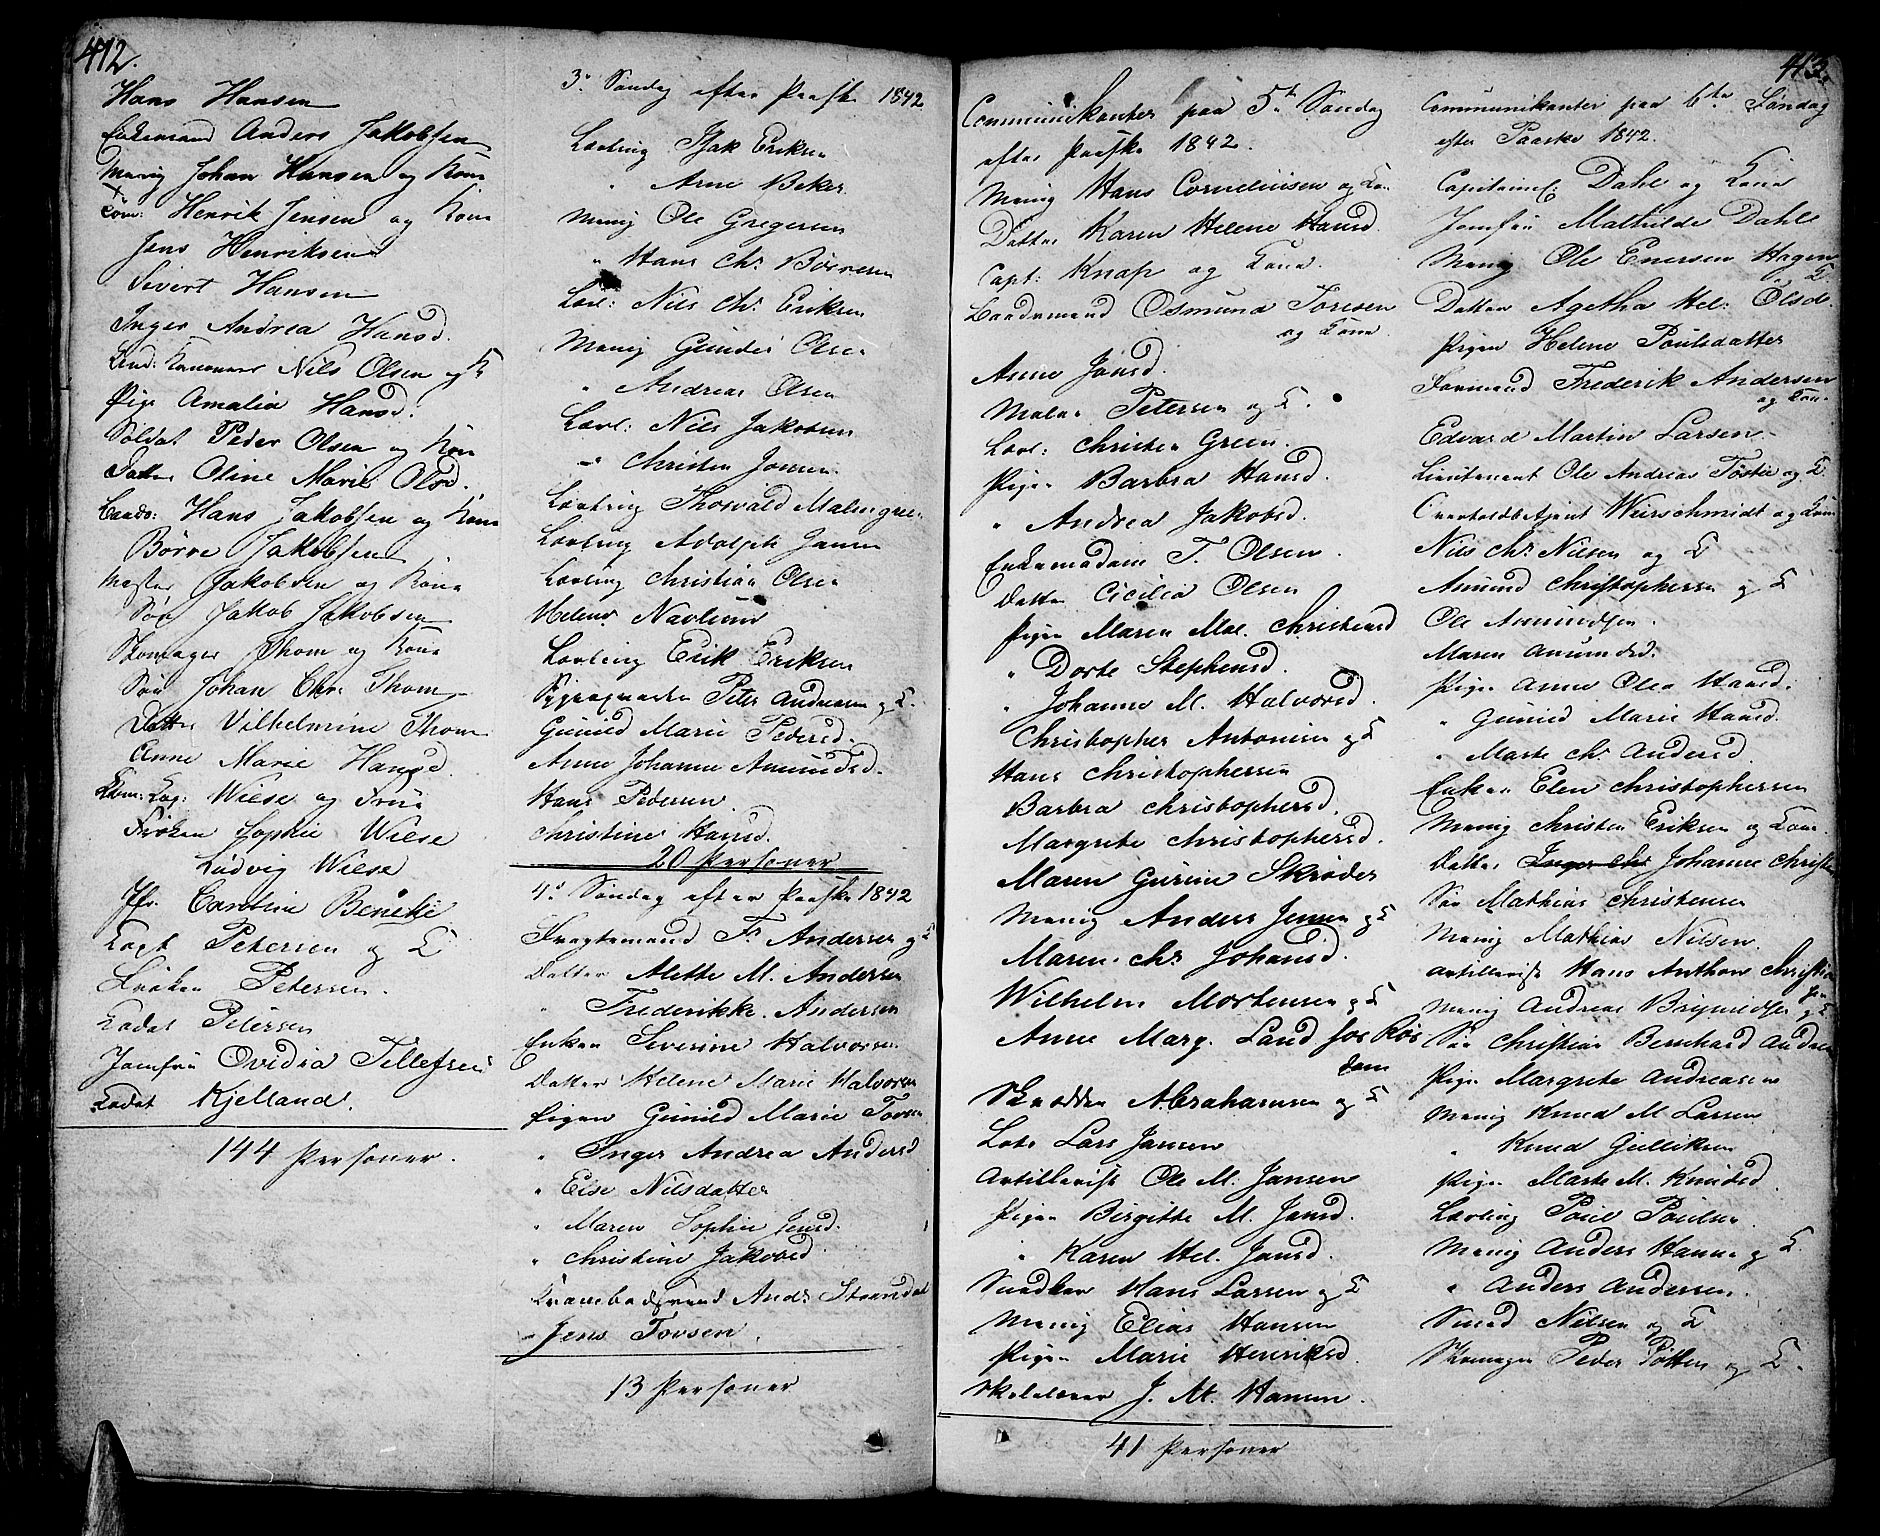 412.
Hans Hansen
Enkemand Anders Jakobsen
Menig Johan Hansen og Kone
Tøm: Henrik Jensen og Kone
Jens Henriksen
Sivert Hansen
Inger Andrea Hansd.
Nils Olsen og K
Pige Amalia Hansd.
Soldat Peder Olsen og Kone
Datter Oline Marie Olsd.
Hans Jakobsen og Kone
Børre Jakobsen
Mester Jakobsen og Kone
Søn Jakob Jakobsen
Skomager Thom og Kone
Søn Johan Chr. Thom
Datter Vilhelmine Thom
Anne Marie Hansd.
Wiese og Frue
Frøken Sophie Wiese
Ludvig Wiese
Jfr. Caroline
Capt Petersen og K
Frøken Petersen.
Kadet Petersen
Jomfru Ovidia Tellefsen
Kadet Kjelland.
144 Personer.
3. Søndag efter Paaske 1842
Lærling Isak Eriksen
" Arne Beker
Menig Ole Gregersen
" Hans Chr. Børresen
Lærl: Nils Chr. Eriksen
Menig Gunder Olsen
" Andreas Olsen
Lærl: Nils Jakobsen
" Christen Jonsen
Lærling Thorvald Malmgreen
Lærling Adolph Jansen
Lærling Christian Olsen
Helene
Lærling Erik Eriksen
Peter Andersen og K.
Gunild Marie Pedersd.
Anne Johanne Amundsd.
Hans Pedersen.
Christine Hansd.
20 Personer
4. Søndag efter Paaske 1842
Fragtemand Fr. Andersen og K
Datter Alette M. Andersen
" Frederikke Andersen
Enken Severine Halvorsen
Datter Helene Marie Halvorsen
Pigen Gunild Marie Tovsen
" Inger Andrea Andersd
" Else Nilsdatter
" Maren Sophie Jensd.
" Christine Jakobsd
Andr. Strandal
Jens Tovsen.
13 Personer
413.
Communikanter paa 5te Søndag
efter Paaske 1842.
Menig Hans Corneliusen og Kone
Datter Karen Helene Hansd.
Capt: Knap og Kone.
Baadsmand Osmund Toresen
og Kone.
Anne Jonsd.
Maler Petersen og K.
Lærl: Christen Green.
Pigen Barbra Hansd.
" Andrea Jakobsd.
Enkemadam T. Olsen.
Datter Cicilia Olsen
Pigen Maren Mal. Christensd
" Dorte Stephensd.
" Johanne M. Halvorsd.
Christopher Antonisen og K
Hans Christophersen
Barbra Christophersd.
Margrete Christophersd.
Maren Gurine Skrøder
Menig Anders Jensen og K
Maren Chr. Johansd.
Wilhelm Mortensen og K
Anne Marg. Lund for
dem
Skrædder Abrahamsen og K
Lods Lars Jansen
Artillerist Ole M. Jansen
Pigen Birgitte M. Jansd.
" Karen Hel. Jansd.
Snedker Hans Larsen og K
Menig Elias Hansen
Pigen Marie Henriksd.
Skolelærer J. M. Hansen.
41 Personer
Communikanter paa 6te Søndag
efter Paaske 1842.
Dahl og Kone
Jomfru Mathilde Dahl
Menig Ole Enersen Hagen
og K
Datter Agetha Hel. Olsd.
Pigen Helene Poulsdatter
Formand Frederik Andersen
og Kone
Edvard Martin Larsen
Lieutenant Ole Andreas og K
Overtoldbetjent Weirschmidt og Kone
Nils Chr. Nilsen og K
Amund Christophersen og K
Ole Amundsen.
Maren Amundsd.
Pigen Anne Olea Hansd.
" Gunild Marie Hansd.
" Marte Chr. Andersd.
Enken Elen Christophersen
Menig Christen Eriksen og Kone.
Datter Inger Chr Johanne Christe
Søn Mathias Christensen
Menig Mathias Nilsen.
Artillerist Hans Anthon Christian
sen
Menig Andreas og K
Søn Christian Bernhard Andrea
Pigen Margrete Andreasen
Menig Knud M. Larsen
" Knud Gulliksen
Pigen Marte M. Knudsd.
Lærling Poul Poulsen.
Menig Anders Hansen og K.
" Anders Andersen.
Smed Nilsen og K
Skomager Peder og K.